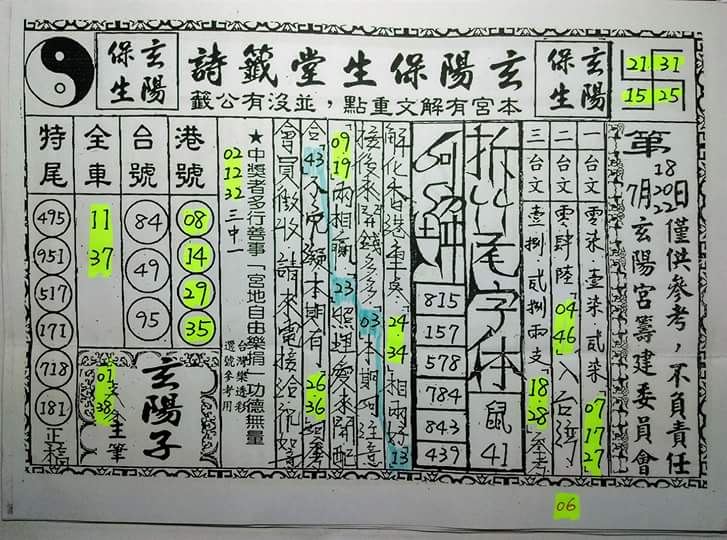 玄陽保生
玄陽保生堂籤詩
本宮有解文重點，並沒有公籤
玄陽保生
21 31
15 25
第
7月18 20 22日
僅供參考，不負責任
玄陽宮籌建委員會
一台文零柒壹柒貳柒「07 17 27」
二台文零肆陸「04 46」入台灣
三台文壹捌貳捌兩支「18 28」參考
拆 尾字体
鼠
41
815
157
578
784
843
439
解化香港車「24 34」相兩好13
接後來 錢多多「03」本期 注意
「09 19」兩相贏「23」照理愛來開
合「43」今 本期有「26 36」參
會員徵收請來電接洽
02
12
32
三中一
★中獎者多行善事「宮地自由樂捐」功德無量
台灣樂透彩
選號參考用
港號
08
14
29
35
台號
84
49
95
全車
11
37
特尾
495
951
517
171
718
181
正稿
玄陽子
筆
01
38
06